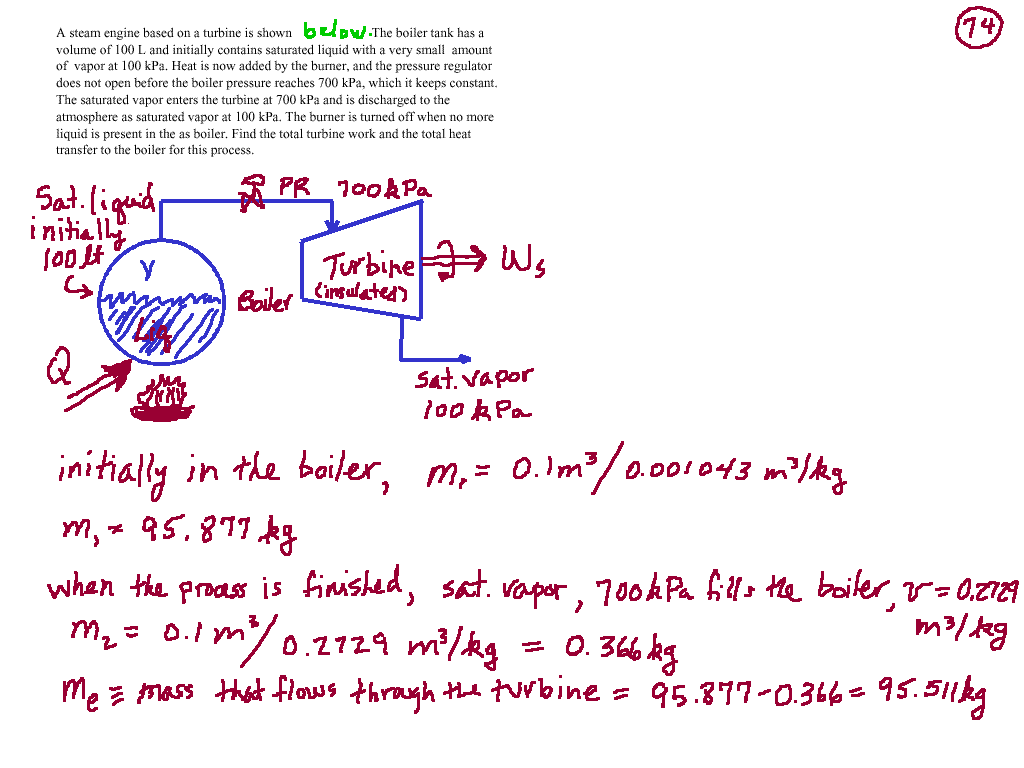 74
A steam engine based on a turbine is shown below. The boiler tank has a
volume of 100 L and initially contains saturated liquid with a very small amount
of vapor at 100 kPa. Heat is now added by the burner, and the pressure regulator
does not open before the boiler pressure reaches 700 kPa, which it keeps constant.
The saturated vapor enters the turbine at 700 kPa and is discharged to the
atmosphere as saturated vapor at 100 kPa. The burner is turned off when no more
liquid is present in the as boiler. Find the total turbine work and the total heat
transfer to the boiler for this process.
Sat. liquid
initially
100 lt
PR 700 kPa
V
Liq
Boiler
Turbine
(insulated)
Ws
Q
sat. vapor
100 kPa
initially in the boiler, m₁ = 0.1m³/0.001043 m³/kg
m₁ = 95.877 kg
when the process is finished, sat. vapor, 700 kPa fills the boiler, v = 0.2729
m³/kg
m₂ = 0.1 m³/0.2729 m³/kg = 0.366 kg
me ≡ mass that flows through the turbine = 95.877-0.366 = 95.511 kg